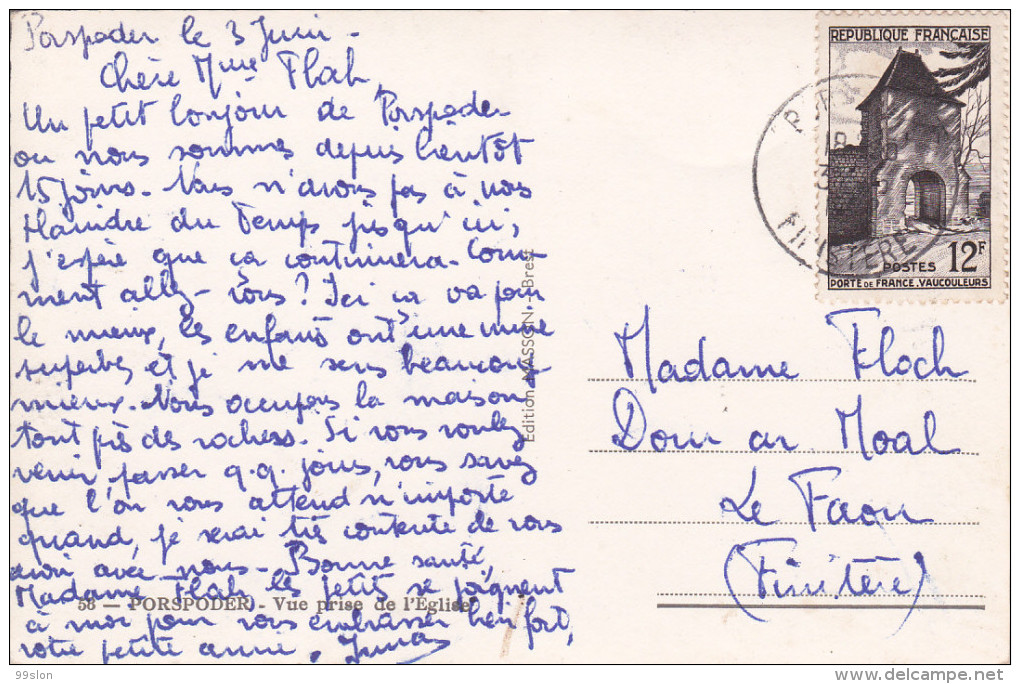 Porspoder le 3 Juin -
Chère Mme Floch,
Un petit bonjour de Porspoder
ou nous sommes depuis bientôt
15 jours. Nous n'avons pas à nous
plaindre du temps jusqu'ici,
j'espère que ça continuera. Com-
ment allez-vous ? Ici ça va pour
le mieux, les enfants ont une mine
superbes et je me sens beaucoup
mieux. Nous occupons la maison
tout près des rochers. Si vous voulez
venir passer q.q. jours, vous savez
que l'on vous attend n'importe
quand, je serai très contente de vous
avoir avec nous. Bonne santé,
Madame Floch, les petits se joignent
à moi pour vous embrasser bien fort,
votre petite amie.
58 — PORSPODER - Vue prise de l'Eglise
Edition MASSON - Brest
REPUBLIQUE FRANÇAISE
POSTES 12F
PORTE DE FRANCE.VAUCOULEURS
FINISTÈRE
Madame Floch
Dour ar Moal
Le Faou
(Finistère)
99slon
www.delcampe.net